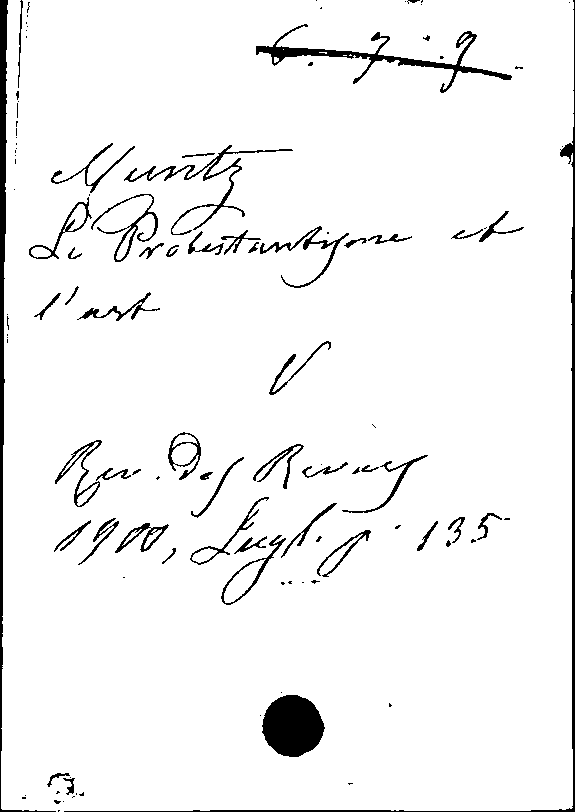 6. 7. 9.
Muntz
Le Protestantisme et
l'art
V
Rev. des Revues
1900, Lugl. p. 135